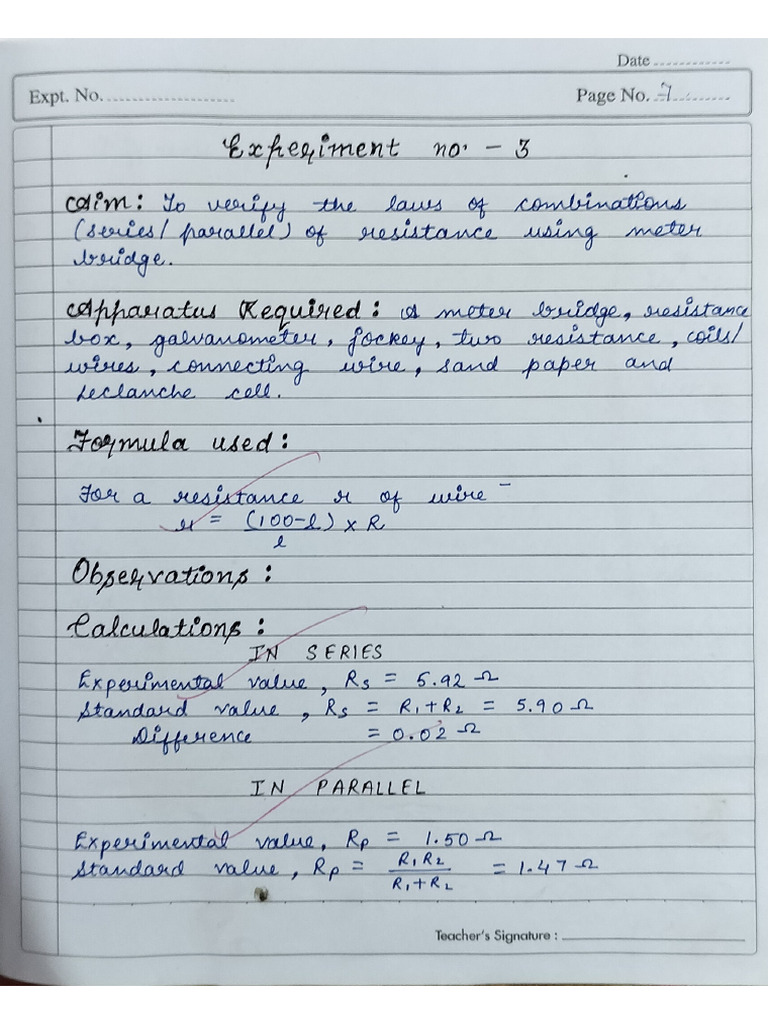 Date ..............
Expt. No. .......................... Page No. 7
Experiment no. - 3
Aim: To verify the laws of combinations
(series/parallel) of resistance using meter
bridge.
Apparatus Required: A meter bridge, resistance
box, galvanometer, jockey, two resistance, coils/
wires, connecting wire, sand paper and
Leclanche cell.
Formula used:
For a resistance r of wire -
r = (100-l)/l × R
Observations:
Calculations:
IN SERIES
Experimental value, Rs = 5.92 Ω
Standard value, Rs = R1+R2 = 5.90 Ω
Difference = 0.02 Ω
IN PARALLEL
Experimental value, Rp = 1.50 Ω
Standard value, Rp = R1R2/R1+R2 = 1.47 Ω
Teacher's Signature : ____________________